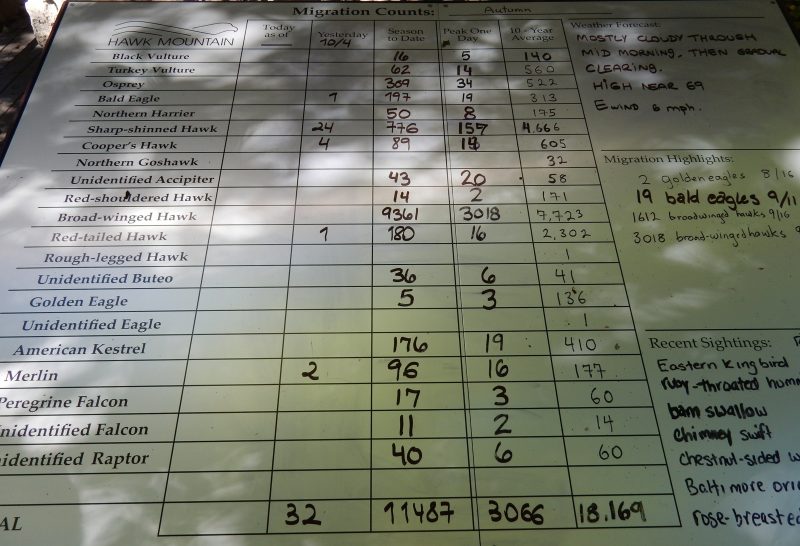 Migration Counts: Autumn
HAWK MOUNTAIN
Today as of
Yesterday 10/4
Season to Date
Peak One Day
10 - Year Average
Black Vulture 16 5 140
Turkey Vulture 62 14 560
Osprey 309 34 522
Bald Eagle 1 197 19 313
Northern Harrier 50 8 175
Sharp-shinned Hawk 24 776 157 4,666
Cooper's Hawk 4 89 605
Northern Goshawk 32
Unidentified Accipiter 43 20 58
Red-shouldered Hawk 14 2 171
Broad-winged Hawk 9361 3018 7,723
Red-tailed Hawk 1 180 16 2,302
Rough-legged Hawk 1
Unidentified Buteo 36 6 41
Golden Eagle 5 3 136
Unidentified Eagle 1
American Kestrel 176 19 410
Merlin 2 96 16 177
Peregrine Falcon 17 3 60
nidentified Falcon 11 2 14
identified Raptor 40 6 60
AL 32 11487 3066 18,169
Weather Forecast:
MOSTLY CLOUDY THROUGH
MID MORNING, THEN GRADUAL
CLEARING.
HIGH NEAR 69
E WIND 6 mph.
Migration Highlights:
2 golden eagles 8/16
19 bald eagles 9/11
1612 broadwinged hawks 9/16
3018 broad-winged hawks
Recent Sightings:
Eastern Kingbird
ruby-throated humm
barn swallow
chimney swift
chestnut-sided w
Baltimore orio
rose-breasted